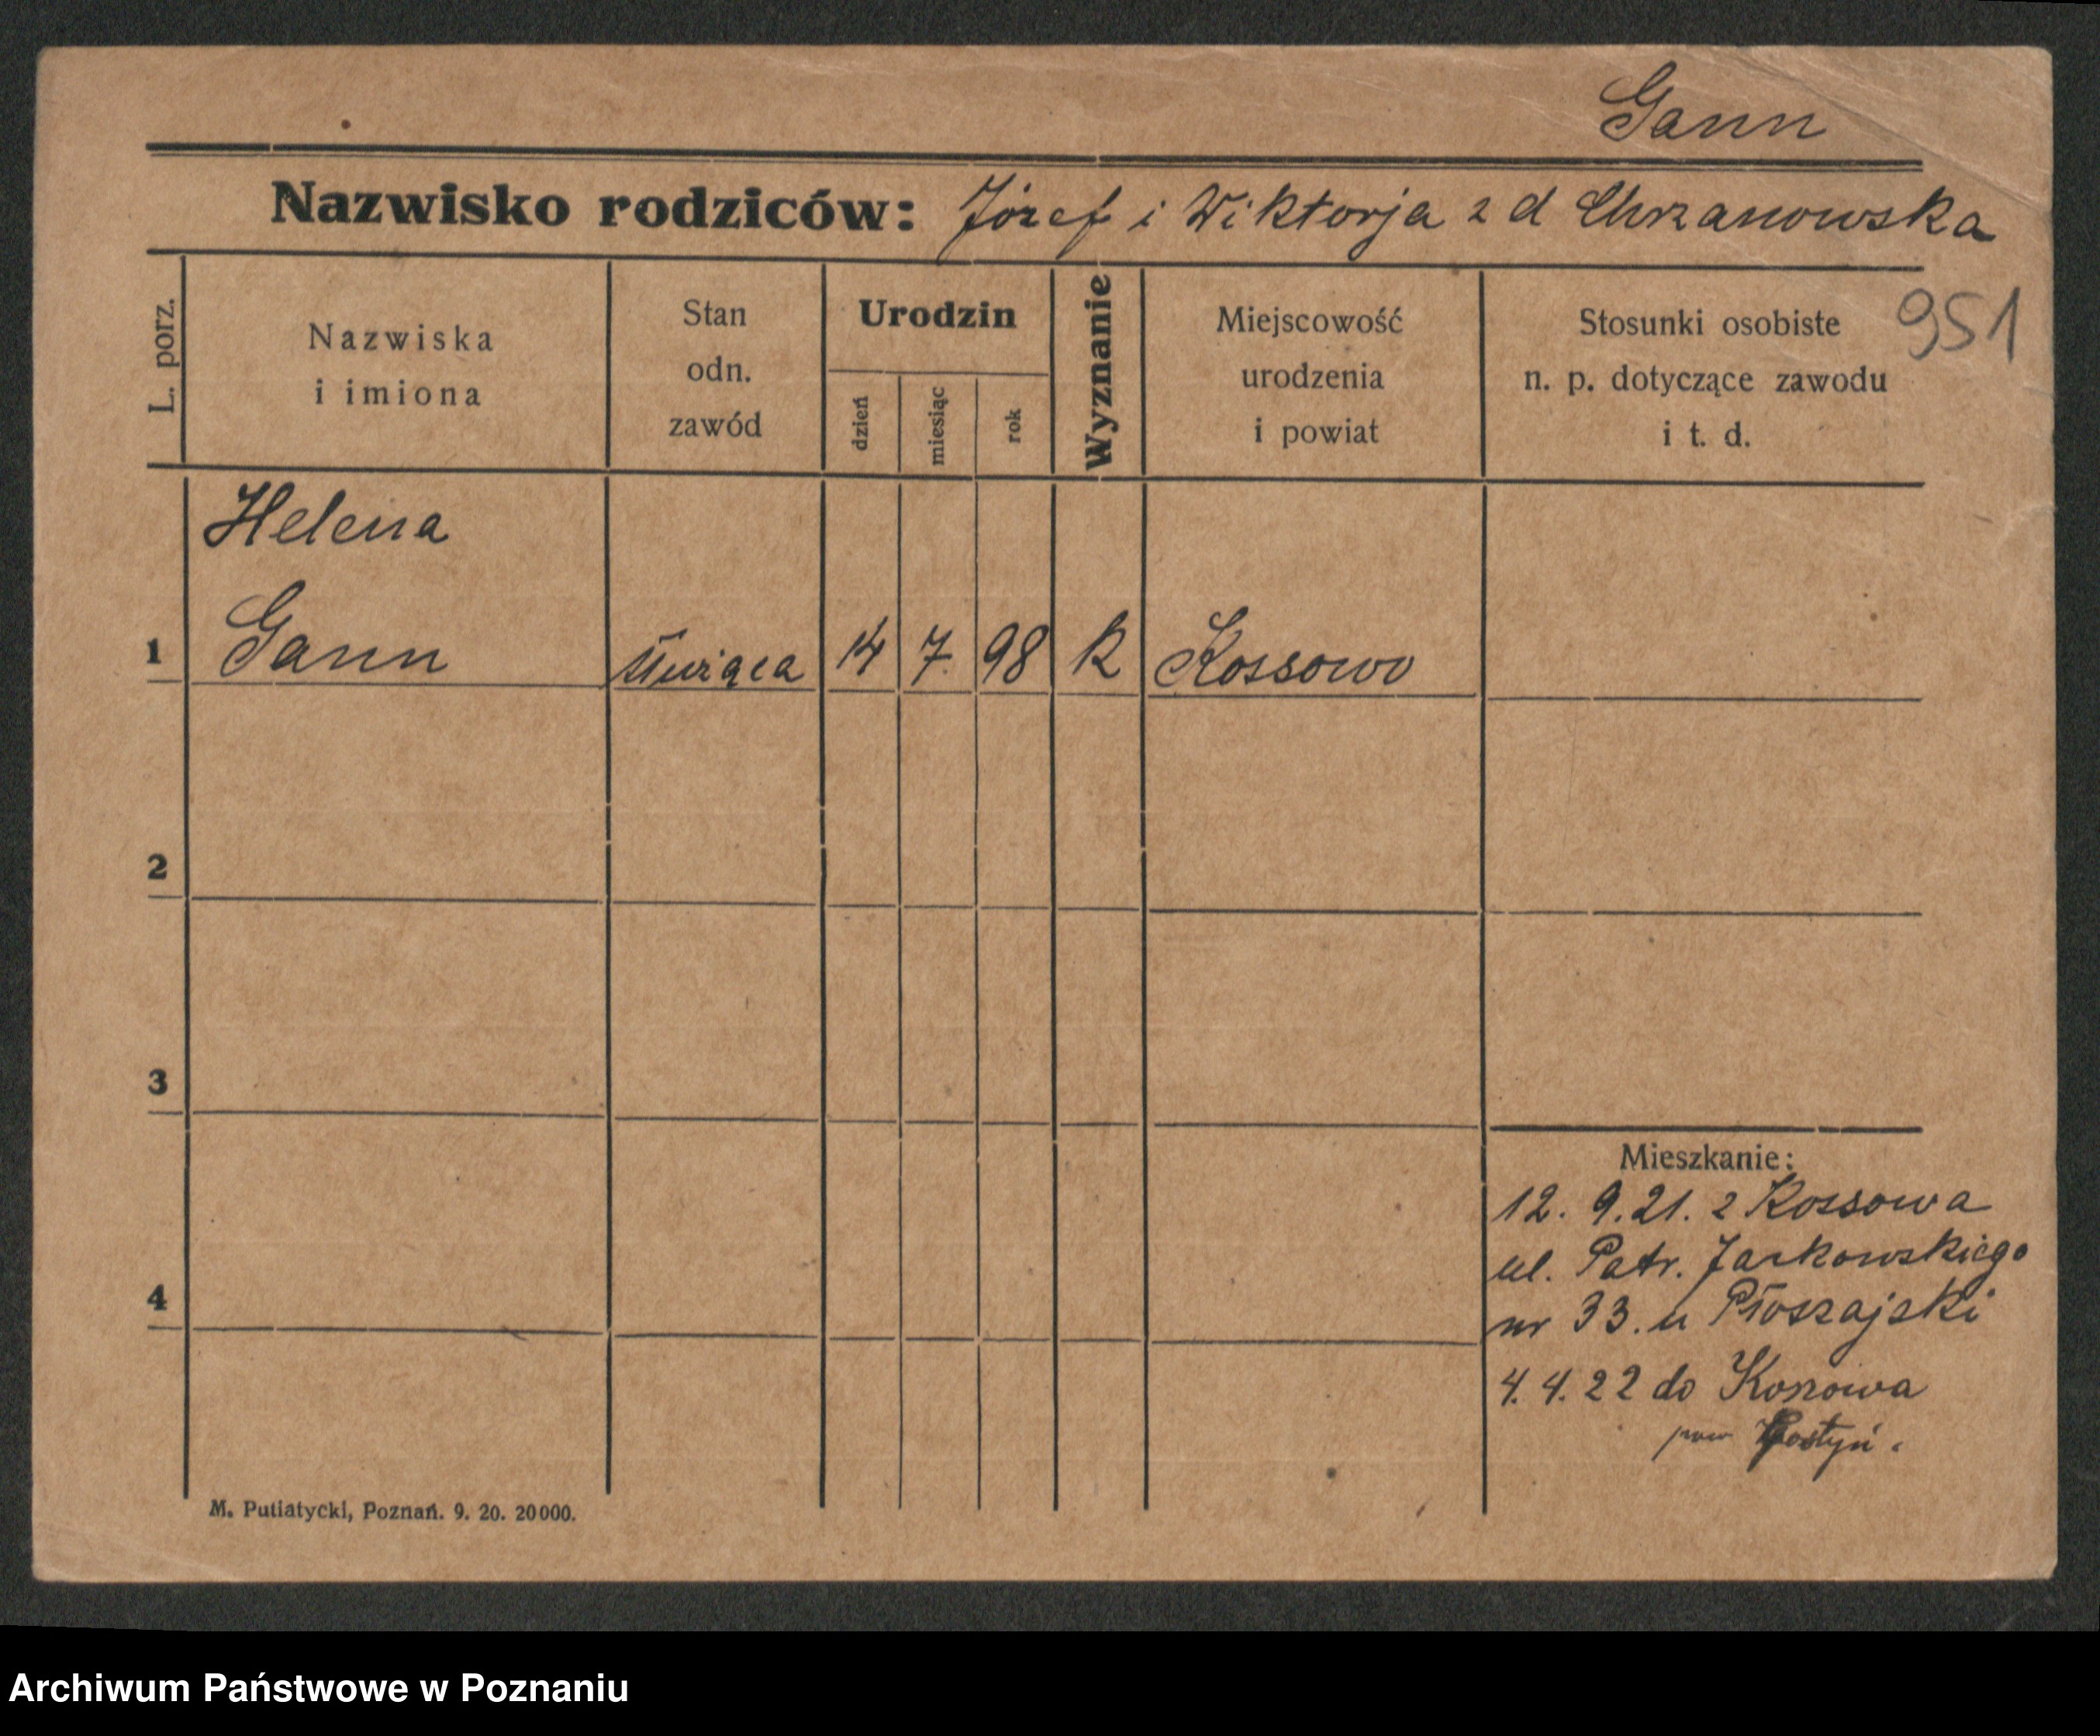 Gann
Nazwisko rodziców: Józef i Wiktorja z d Chrzanowska
951
L. porz.
Nazwiska
i imiona
Stan
odn.
zawód
Urodzin
dzień
miesiąc
rok
Wyznanie
Miejscowość
urodzenia
i powiat
Stosunki osobiste
n. p. dotyczące zawodu
i t. d.
Helena
1 Gann 14 7. 98 K Kossowo
2
3
4
Mieszkanie:
12. 9. 21. z Kossowa
ul. Patr. Jackowskiego
nr 33. u Płoszajski
4. 4. 22 do Kossowa
pow Gostyń.
M. Putiatycki, Poznań. 9. 20. 20000.
Archiwum Państwowe w Poznaniu